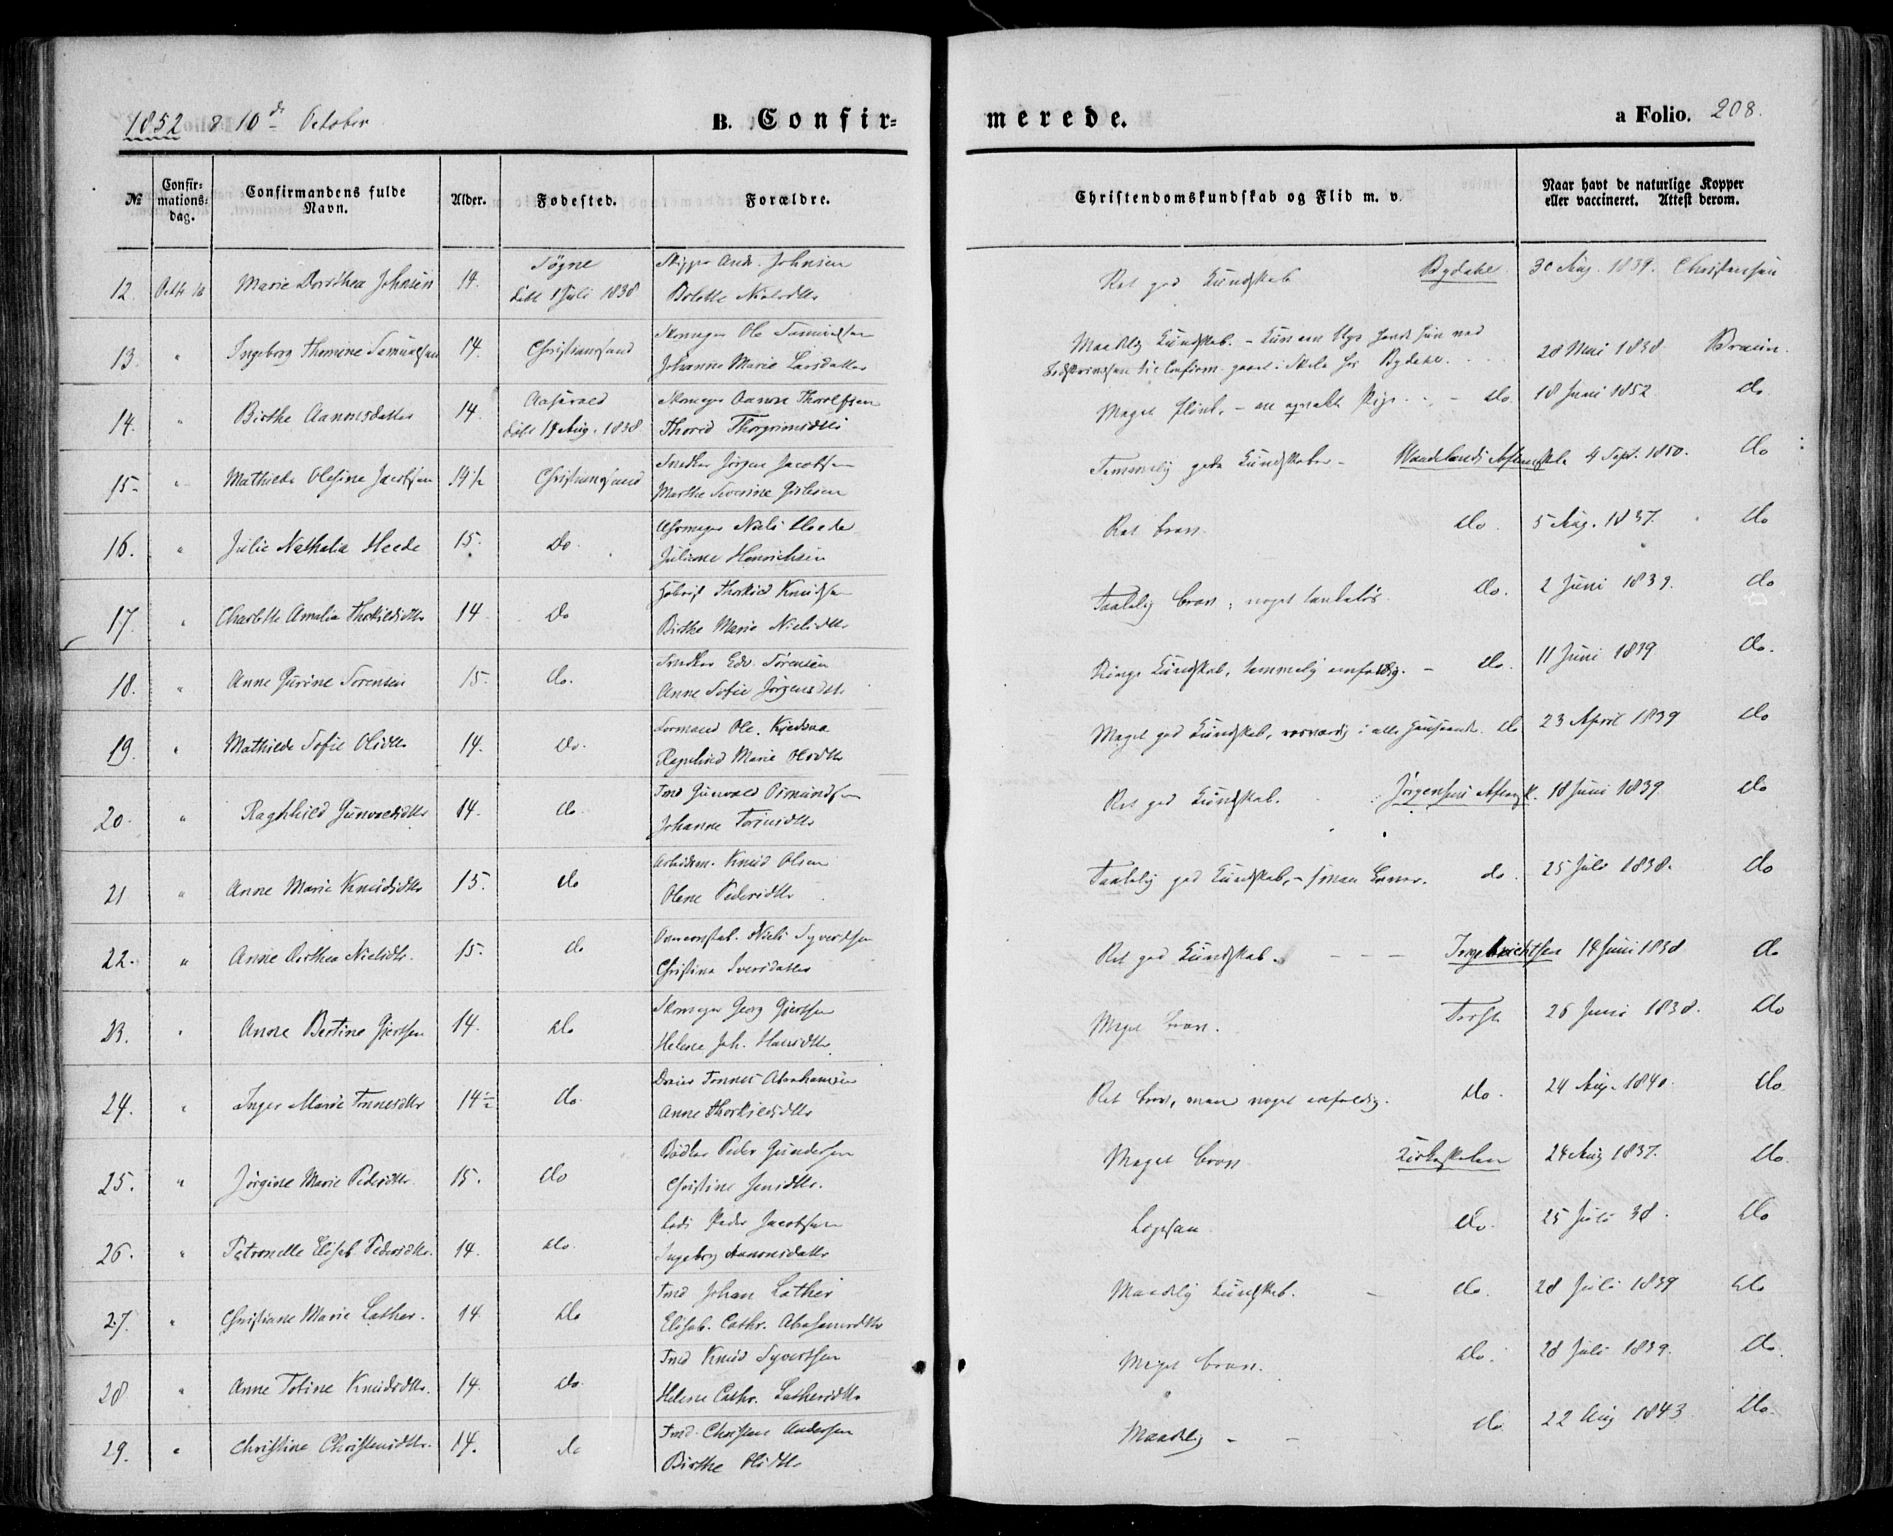 1852 10de October
B. Confir-
merede.
a Folio. 208.
№
Confir-
mations-
dag.
Confirmandens fulde
Navn.
Alder.
Fødested.
Forældre.
Christendomskundskab og Flid m. v.
Naar havt de naturlige Kopper
eller vaccineret. Attest derom.
12. Octbr 10 Marie Dorothea Johnsen 14. Søgne Skipper Andr. Johnsen
døbt 1 Juli 1838 Bolette Nielsdtr
Ret god Kundskab Bydahl. 30 Aug. 1839. Christensen
13. " Ingeborg Thomine Samuelsen 14. Christianssand Skomager Ole Samuelsen
Johanne Marie Larsdatter
Maadelig Kundskab. 28 Mai 1838 Bruun.
Bydahl.
14. " Birthe Aanonsdatter 14. Aaserald Skomager Aanon Thorolfsen
døbt 19 Aug. 1838 Thored Thorgrimsdtr
Meget flink, - en opvakt Pige - do. 18 Juni 1852 do
15. " Mathilde Olesine Jacobsen 14½ Christianssand Snedker Jørgen Jacobsen
Marthe Severine
Temmelig gode Kundskaber - 4 Sept. 1850. do
16. " Julie Nathalia Heede 15. do. Niels Heede
Juliane Henrichsen
Ret brav. do. 5 Aug. 1837. do
17. " Charlotte Amalia Thorkildsdtr 14 do Thorkild Knudsen
Birthe Marie Nielsdtr
Taalelig brav, noget tankeløs. do. 2 Juni 1839. do
18. " Anne Gurine Sørensen 15. do. Snedker Edv. Sørensen
Anne Sofie Jørgensdtr
Ringe Kundskab, temmelig eenfoldig. - do. 11 Juni 1839 do.
19. " Mathilde Sofie Olsdtr 14. do. Formand Ole
Ragnhild Marie Olsdtr
Meget god Kundskab, rosværdig i alle Henseender. do 23 April 1839 do
20. " Raghhild Gunvaldsdtr 14. do. Tmd Gunvald Osmundsen
Johanne
Ret god Kundskab. Jørgensens 18 Juni 1839 do
21 " Anne Marie Knudsdtr 15. do Arbeidsm. Knud Olsen
Olene Pedersdtr
Taalelig god Kundskab, - do. 25 Juli 1838. do
22. " Anne Dorthea Nielsdtr. 15. do Niels Syvertsen
Christina Iversdatter
Ret god Kundskab. - - - Ingebrichtsen 14 Juni 1838 do
23. " Anne Bertine Gjertsen 14. do Skomager Georg Gjertsen
Helene Joh. Hansdtr
Meget brav. 26 Juni 1838. do
24. " Inger Marie Tønnesdtr 14½ do. Tønnes Abrahamsen
Anne Thorkildsdtr
Ret brav, men noget enfoldig. do. 24 Aug. 1840. do
25. " Jørgine Marie Pedersdtr. 15. do Bødker Peder Gundersen
Christine Jensdtr.
Meget brav. Kirkeskolen 24 Aug 1837. do.
26. " Petronelle Elisab. Pedersdtr. 14. do. Lods Peder Jacobsen
Ingeborg Aanonsdatter
do. 25 Juli 38. do
27. " Christiane Marie Lather. 14 do Tmd Johan Lather
Elisab. Cathr.
Maadelig Kundskab. - do. 28 Juli 1839 do
28 " Anne Tobine Knudsdtr. 14. do. Tmd Knud Syvertsen
Helene Cathr. Lathersdtr
Meget brav. do. 28 Juli 1839. do.
29. " Christine Christensdtr. 14. do Tmd Christen Andersen
Birthe Olsdtr
Maadelig - - do 22 Aug 1843 do.